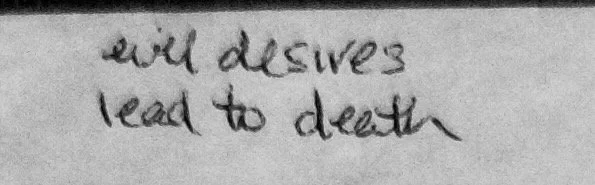 evil desires
lead to death